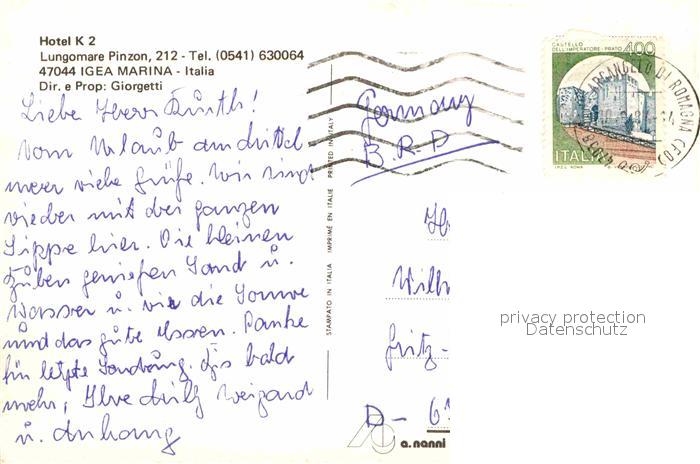 Hotel K 2
Lungomare Pinzon, 212 - Tel. (0541) 630064
47044 IGEA MARINA - Italia
Dir. e Prop: Giorgetti
Liebe Herr
Vom Urlaub am Mittel-
meer viele Grüße. Wir sind
wieder mit der ganzen
Sippe hier. Die kleinen
Buben genießen Sand u.
Wasser u. wir die Sonne
und das gute Essen. Danke
für letzte Sendung. Bis bald
mehr, Ihre Weigand
u. Anhang
STAMPATO IN ITALIA IMPRIMÉ EN ITALIE PRINTED IN ITALY
Germany
B.R.D
CASTELLO
DELL'IMPERATORE - PRATO 400
ITALIA
I.P.Z.S. ROMA
ARCANGELO DI ROMAGNA (FO)
47038
Wilh
Fritz-
D-
privacy protection
Datenschutz
a. nanni